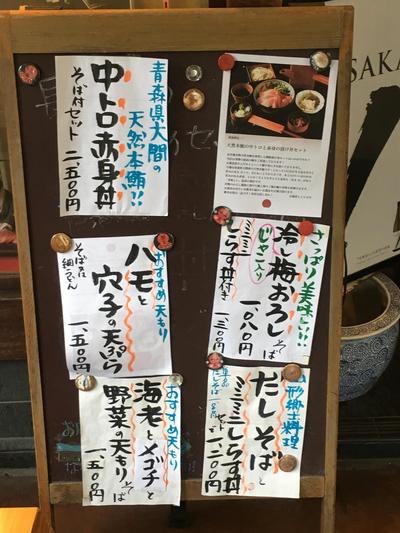 青森県大間の
天然本鮪!!
中トロ赤身丼
そば付セット 二、五〇〇円
天然本鮪の中トロと赤身の漬け丼セット
さっぱり美味しい!!!
冷し梅おろしそば
じゃこ入り
一、〇八〇円
ミニミニ
しらす丼付き
一、三〇〇円
おすすめ天もり
ハモと
穴子の天ぷら
そば又は
細うどん
一、五〇〇円
形郷土料理
だしそばと
ミニミニしらす丼
セット
一、二〇〇円
おすすめ天もり
海老とメゴチと
野菜の天もりそば
一、五〇〇円
SAKA